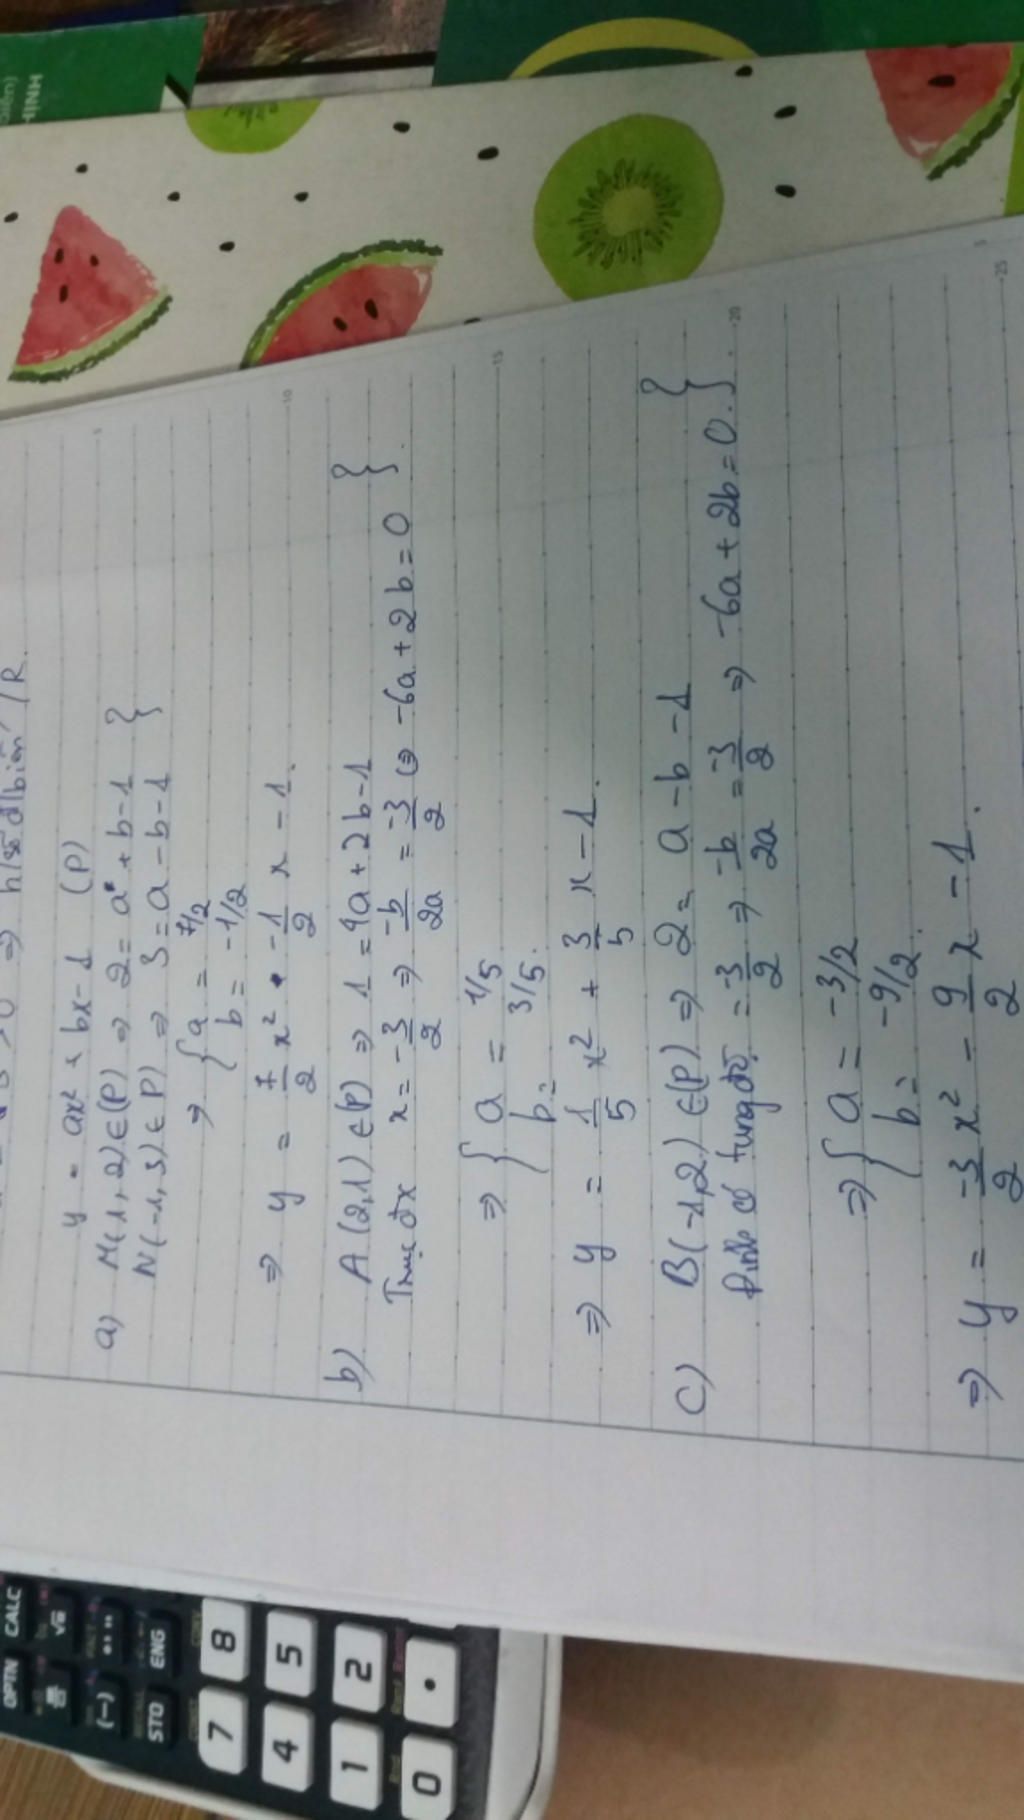 ⇒ h/số đ/biến /R.
y = ax² + bx - 1 (P)
a) M(1, 2) ∈ (P) ⇒ 2 = a + b - 1 }
N(-1, 3) ∈ P) ⇒ 3 = a - b - 1 }
⇒ { a = 7/2
b = -1/2
⇒ y = 7/2 x² - 1/2 x - 1.
b) A (2,1) ∈ (P) ⇒ 1 = 4a + 2b - 1 }
Trục đx x = -3/2 ⇒ -b/2a = -3/2 ⇔ -6a + 2b = 0 }.
⇒ { a = 1/5
b = 3/5.
⇒ y = 1/5 x² + 3/5 x - 1.
c) B(-1,2) ∈ (P) ⇒ 2 = a - b - 1 }
Đỉnh có tung độ = -3/2 ⇒ -b/2a = -3/2 ⇒ -6a + 2b = 0. }.
⇒ { a = -3/2
b = -9/2.
⇒ y = -3/2 x² - 9/2 x - 1.
5
10
15
20
25
OPTN CALC
(-)
STO ENG
7 8
4 5
1 2
0 •